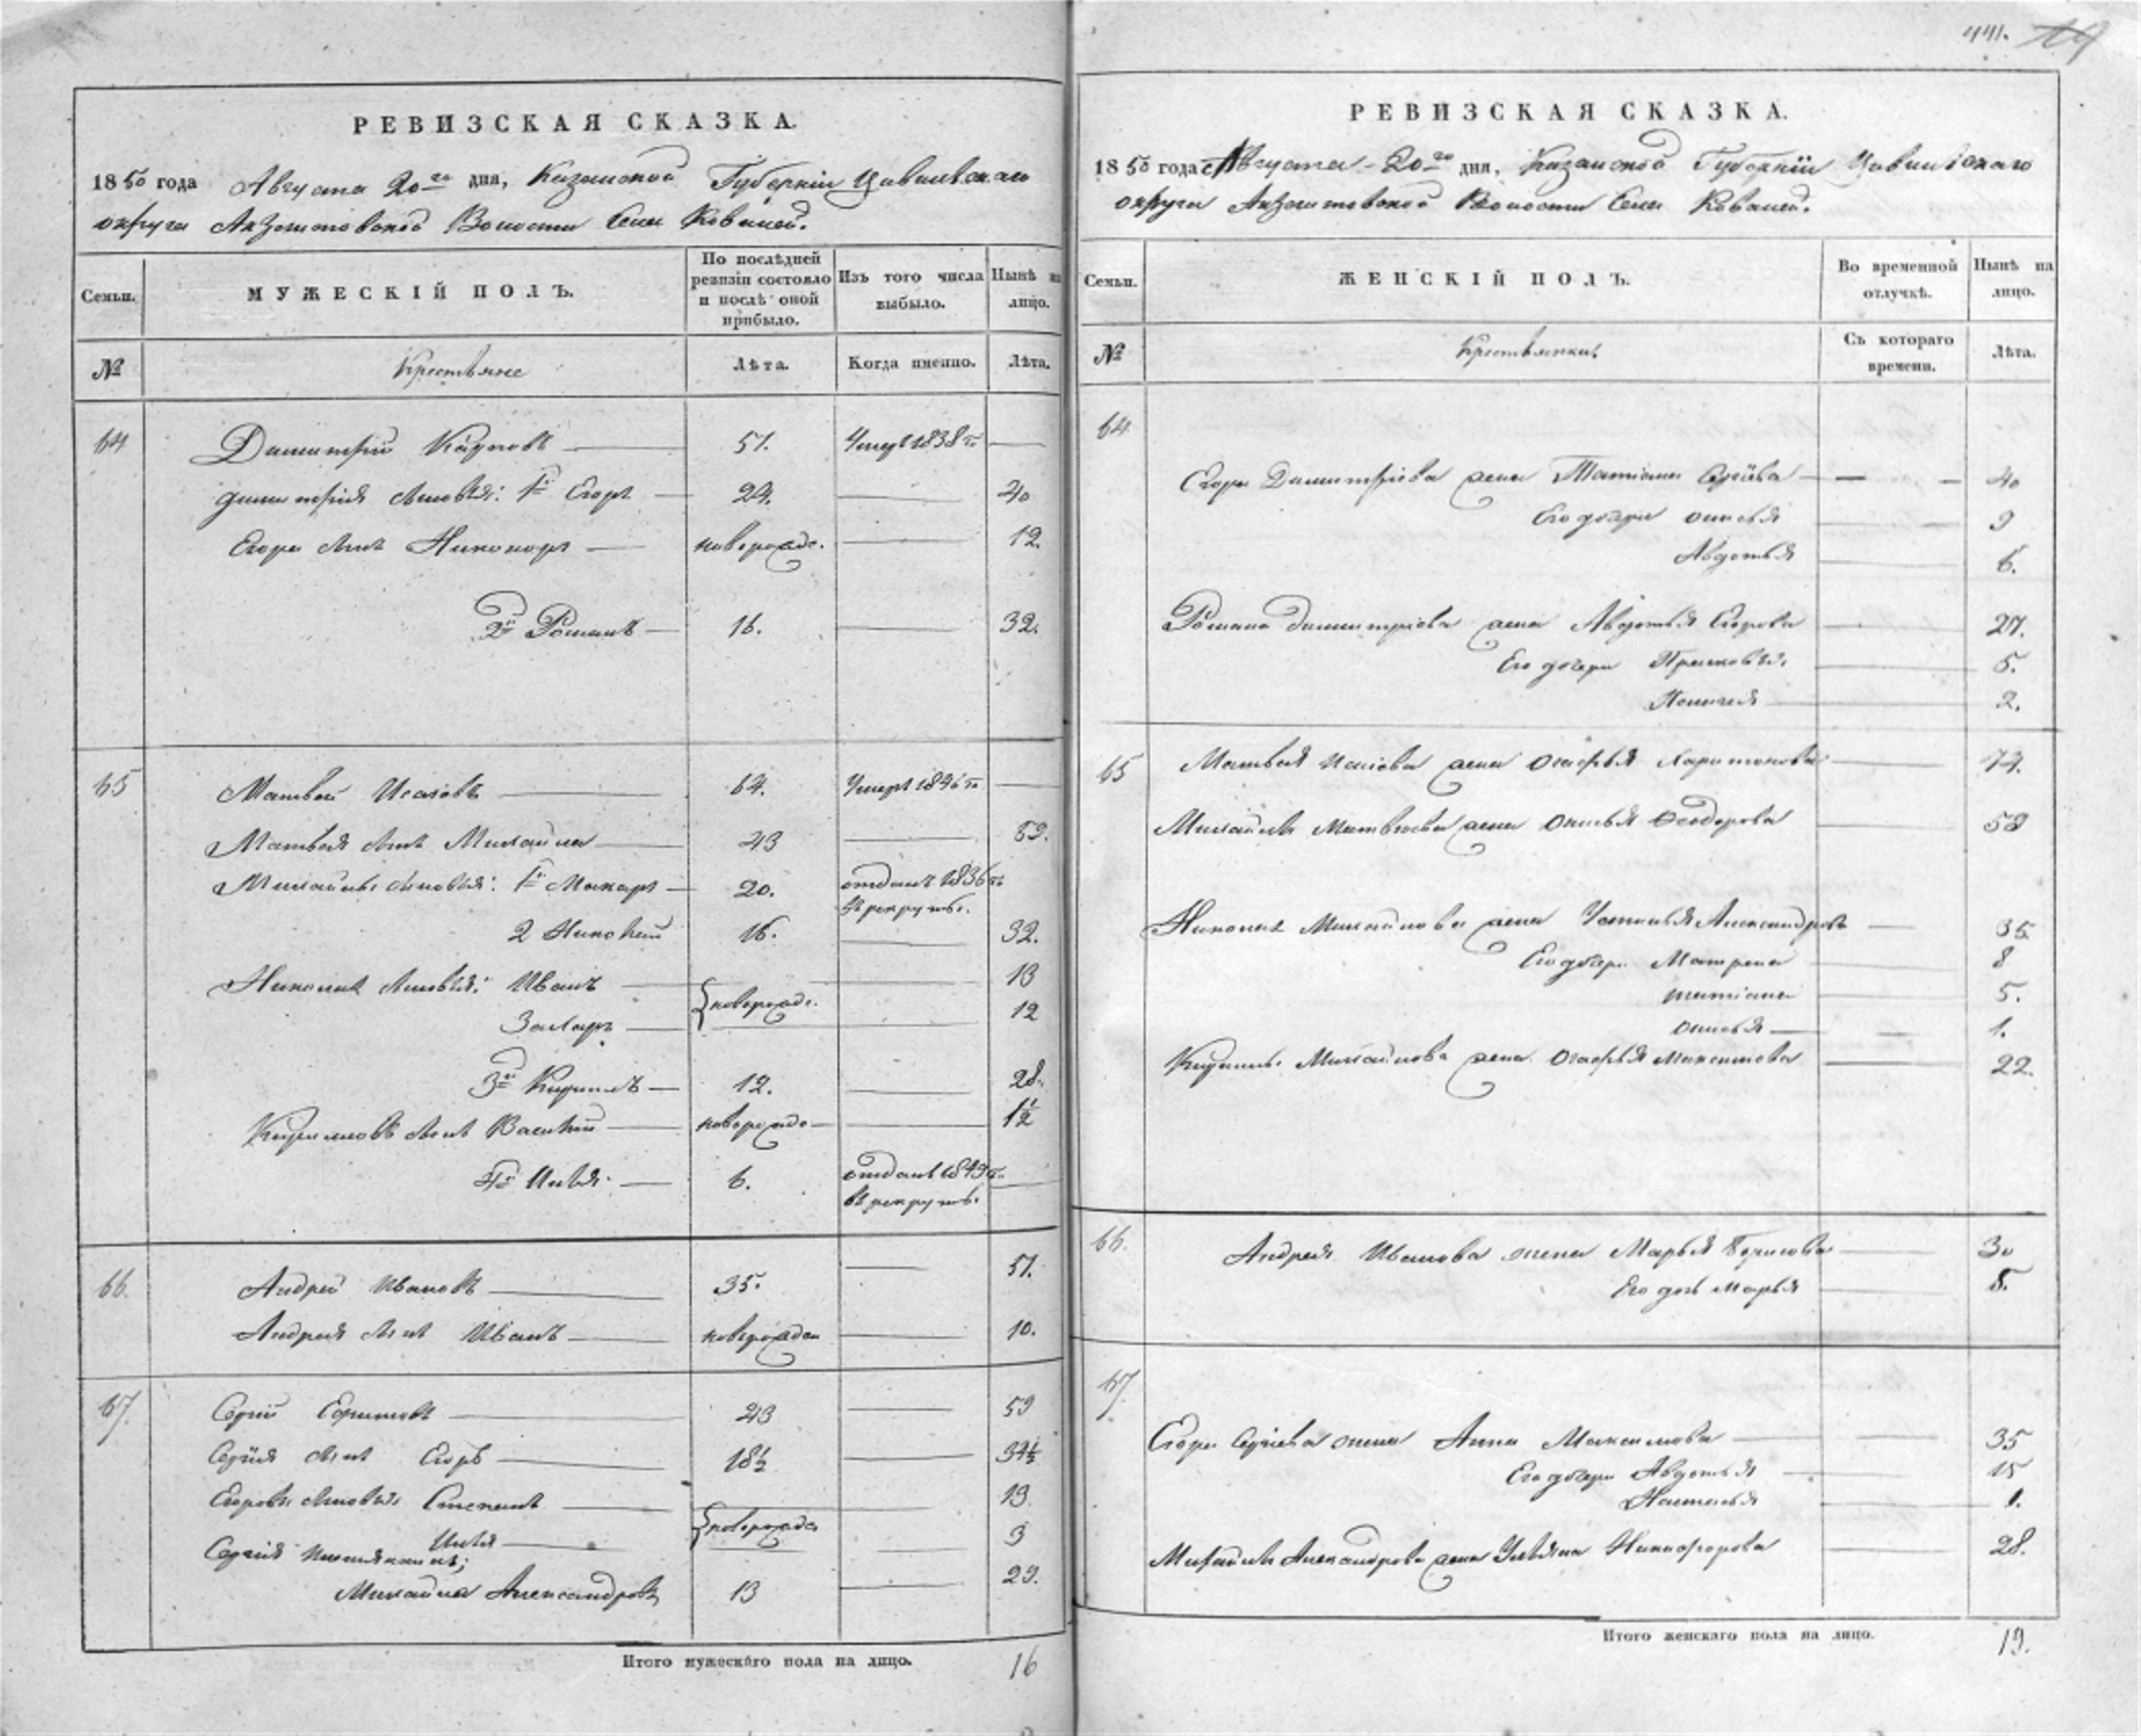 РЕВИЗСКАЯ СКАЗКА.
1850 года Августа 20го дня, Казанской Губернiи Цивильскаго
округа Акзегитовской Волости Села Ковалей.
Семьи.
МУЖЕСКIЙ ПОЛЪ.
По послѣдней ревизiи состояло и послѣ оной прибыло.
Изъ того числа выбыло.
Нынѣ на лицо.
№
Крестьяне
Лѣта.
Когда именно.
Лѣта.
64
Димитрiй — 51. Умеръ 1838го —
Димитрiя сыновья: 1й Егоръ — 24. — 40
Егора сынъ Никоноръ — новорожд. — 12.
2й Романъ — 16. — 32.
65
Матвей Исаевъ — 64. Умеръ 1846го —
Матвея сынъ Михайла — 43 — 59.
Михайлы сыновья: 1й Макаръ — 20. отданъ 1836го
въ рекруты.
2 Николай 16. — 32.
Николая сыновья: Иванъ — новорожд. — 13
Захаръ — 12
3й Кирилъ — 12. — 28.
Кириловъ сынъ Василiй — новорожд — 1½
4й Илья — 6. отданъ 1849го —
въ рекруты.
66
Андрей Ивановъ — 35. — 51.
Андрея сынъ Иванъ — новорожден — 10.
67
Сергiй — 43 — 59
Сергiя сынъ Егоръ — 18½ — 34½
Егоровы сыновья Степанъ — новорожд — 13
Илья — 3
Сергiя племянникъ;
Михайла Александровъ 13 — 29.
Итого мужескаго пола на лицо. 16
441. 19
РЕВИЗСКАЯ СКАЗКА.
1850 года Августа 20го дня, Казанской Губернiи Цивильскаго
округа Акзегитовской Волости Села Ковалей.
Семьи.
ЖЕНСКIЙ ПОЛЪ.
Во временной отлучкѣ.
Нынѣ на лицо.
№
Крестьянки
Съ котораго времени.
Лѣта.
64
Егора Димитрiева жена Татiана Сергiева — 40
Его дочери Анисья — 9
Авдотья — 6.
Романа Димитрiева жена Авдотья Егорова — 27.
Его дочери Прасковья. — 5.
Пелагея — 2.
65
Матвея Исаева жена Агафья Харитонова — 74.
Михайлы Матвеева жена Анисья Феодорова — 58
Николая Михайлова жена Устинья Александрова — 35
Его дочери Матрена — 8
Татiана — 5.
Анисья — 1.
Кирилы Михайлова жена Агафья Максимова — 22.
66.
Андрея Иванова жена Марья Борисова — 30
Его дочь Марья — 8.
67.
Егора Сергiева жена Анна Максимова — 35
Его дочери Авдотья — 15
Наталья — 1.
Михайлы Александрова жена Ульяна Никифорова — 28.
Итого женскаго пола на лицо. 19.